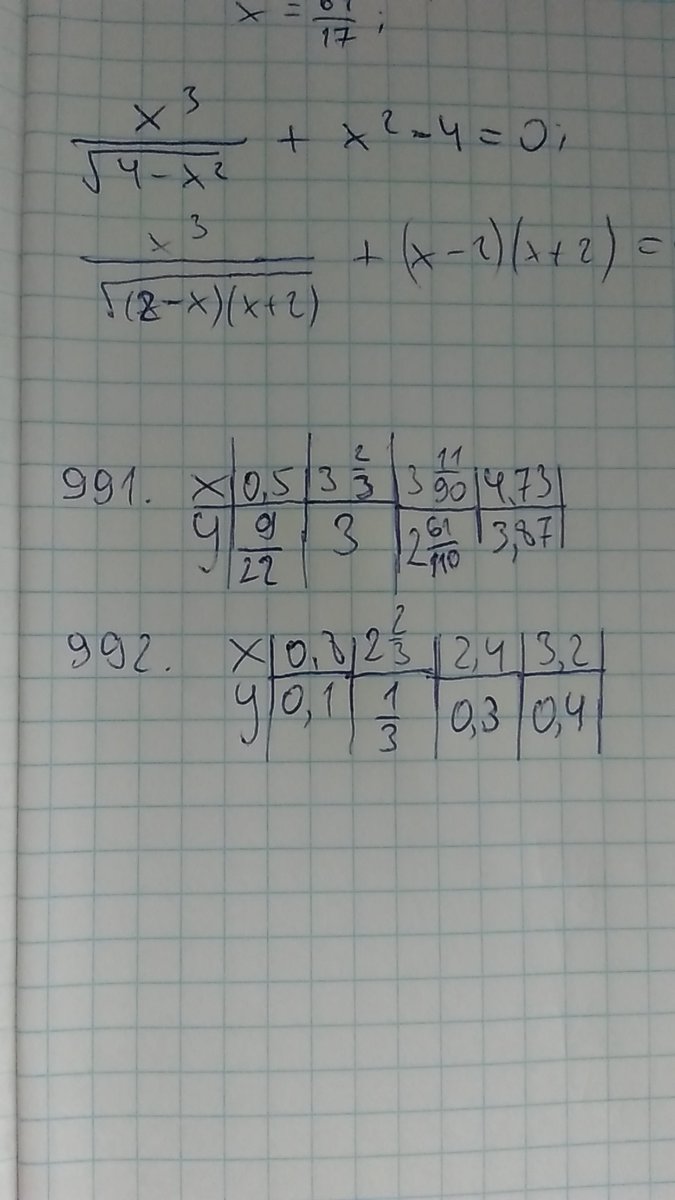 x = 61/17;
x³/√(4-x²) + x² - 4 = 0;
x³/√((2-x)(x+2)) + (x-2)(x+2) =
991. x | 0,5 | 3 2/3 | 3 11/90 | 4,73
y | 9/22 | 3 | 2 61/110 | 3,87
992. x | 0,8 | 2 2/3 | 2,4 | 3,2
y | 0,1 | 1/3 | 0,3 | 0,4